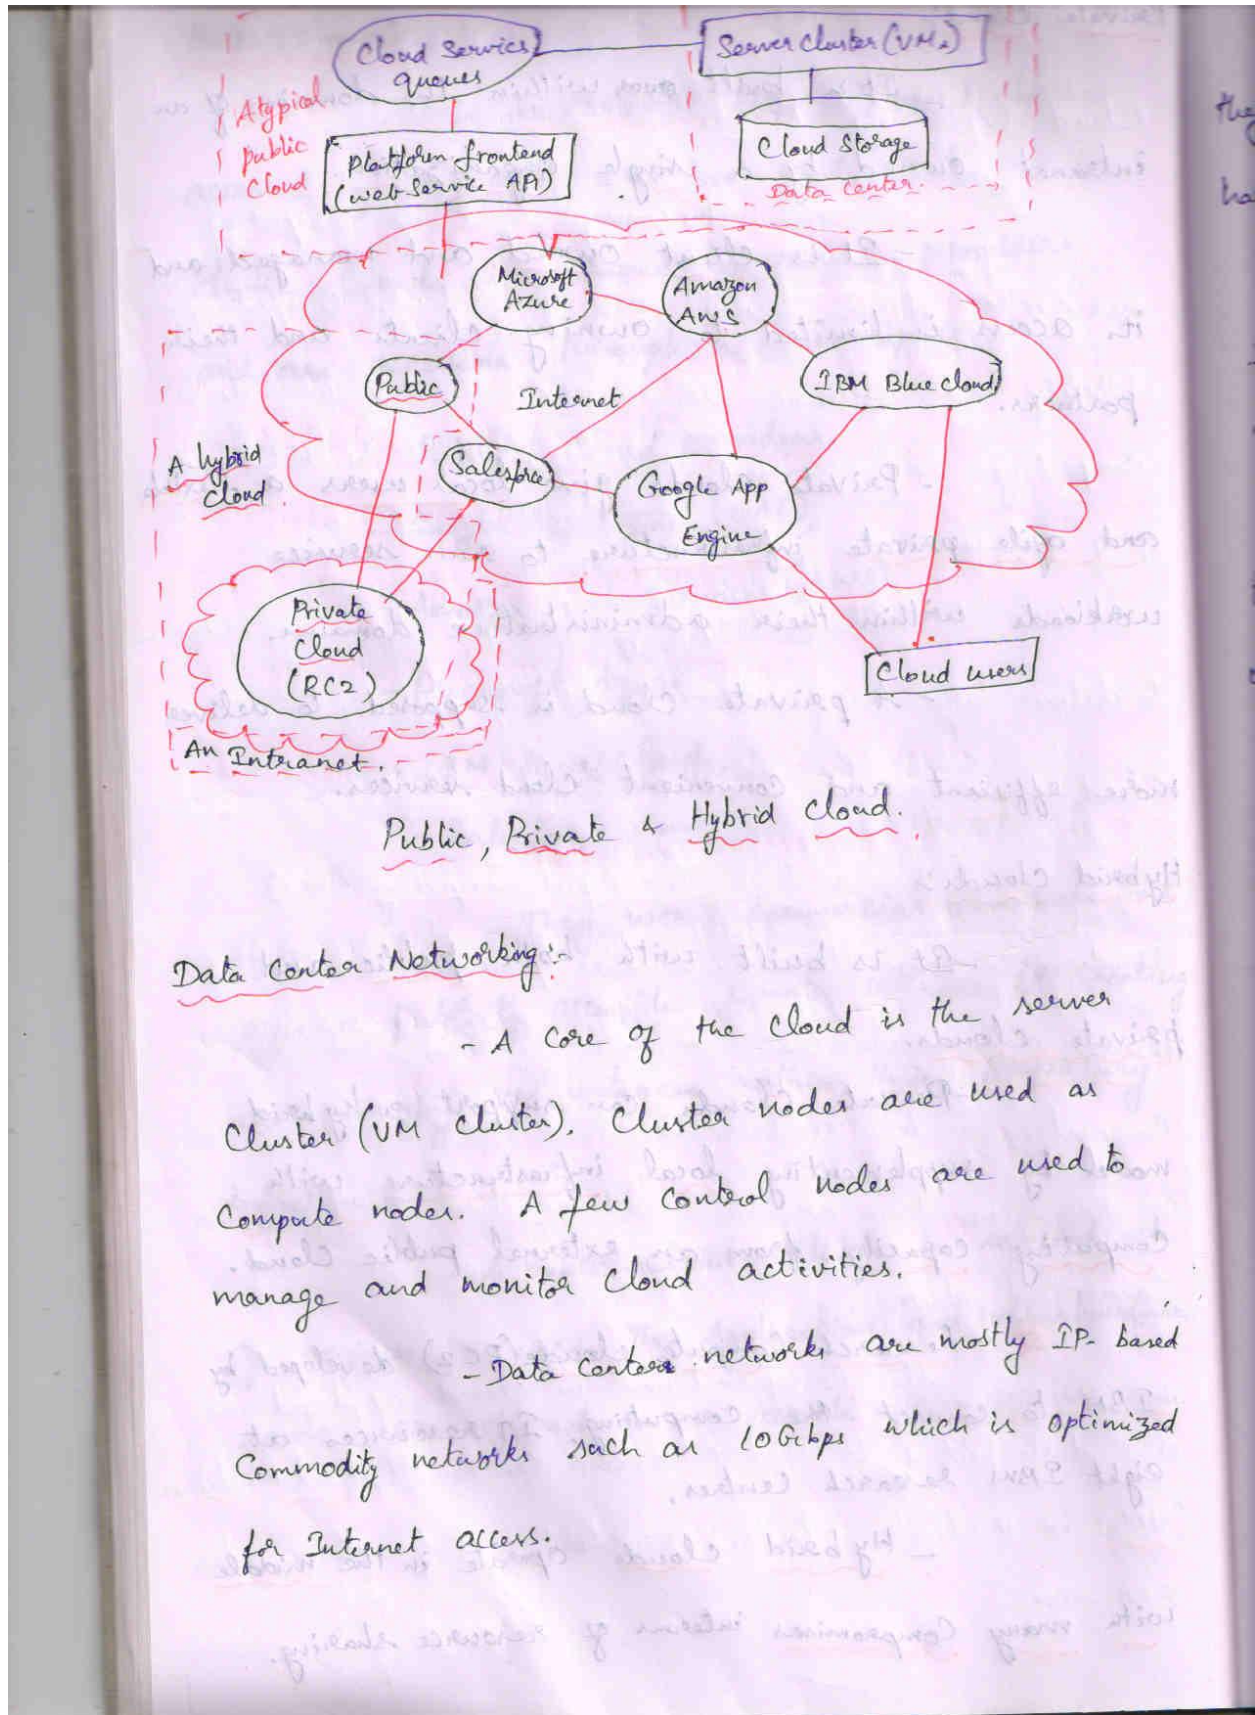 Cloud Service
queues
Server Cluster (VMs)
A typical
public
Cloud
Platform frontend
(web Service API)
Cloud Storage
Data Center.
Microsoft
Azure
Amazon
AWS
Public
Internet
IBM Blue cloud
A hybrid
Cloud.
Salesforce
Google App
Engine
Private
Cloud
(RC2)
Cloud users
An Intranet.
Public, Private & Hybrid Cloud.
Data Center Networking :-
- A core of the cloud is the server
Cluster (VM cluster). Cluster nodes are used as
Compute nodes. A few control nodes are used to
manage and monitor cloud activities.
- Data Center networks are mostly IP- based
Commodity networks such as 10Gbps which is optimized
for Internet access.
the
ha